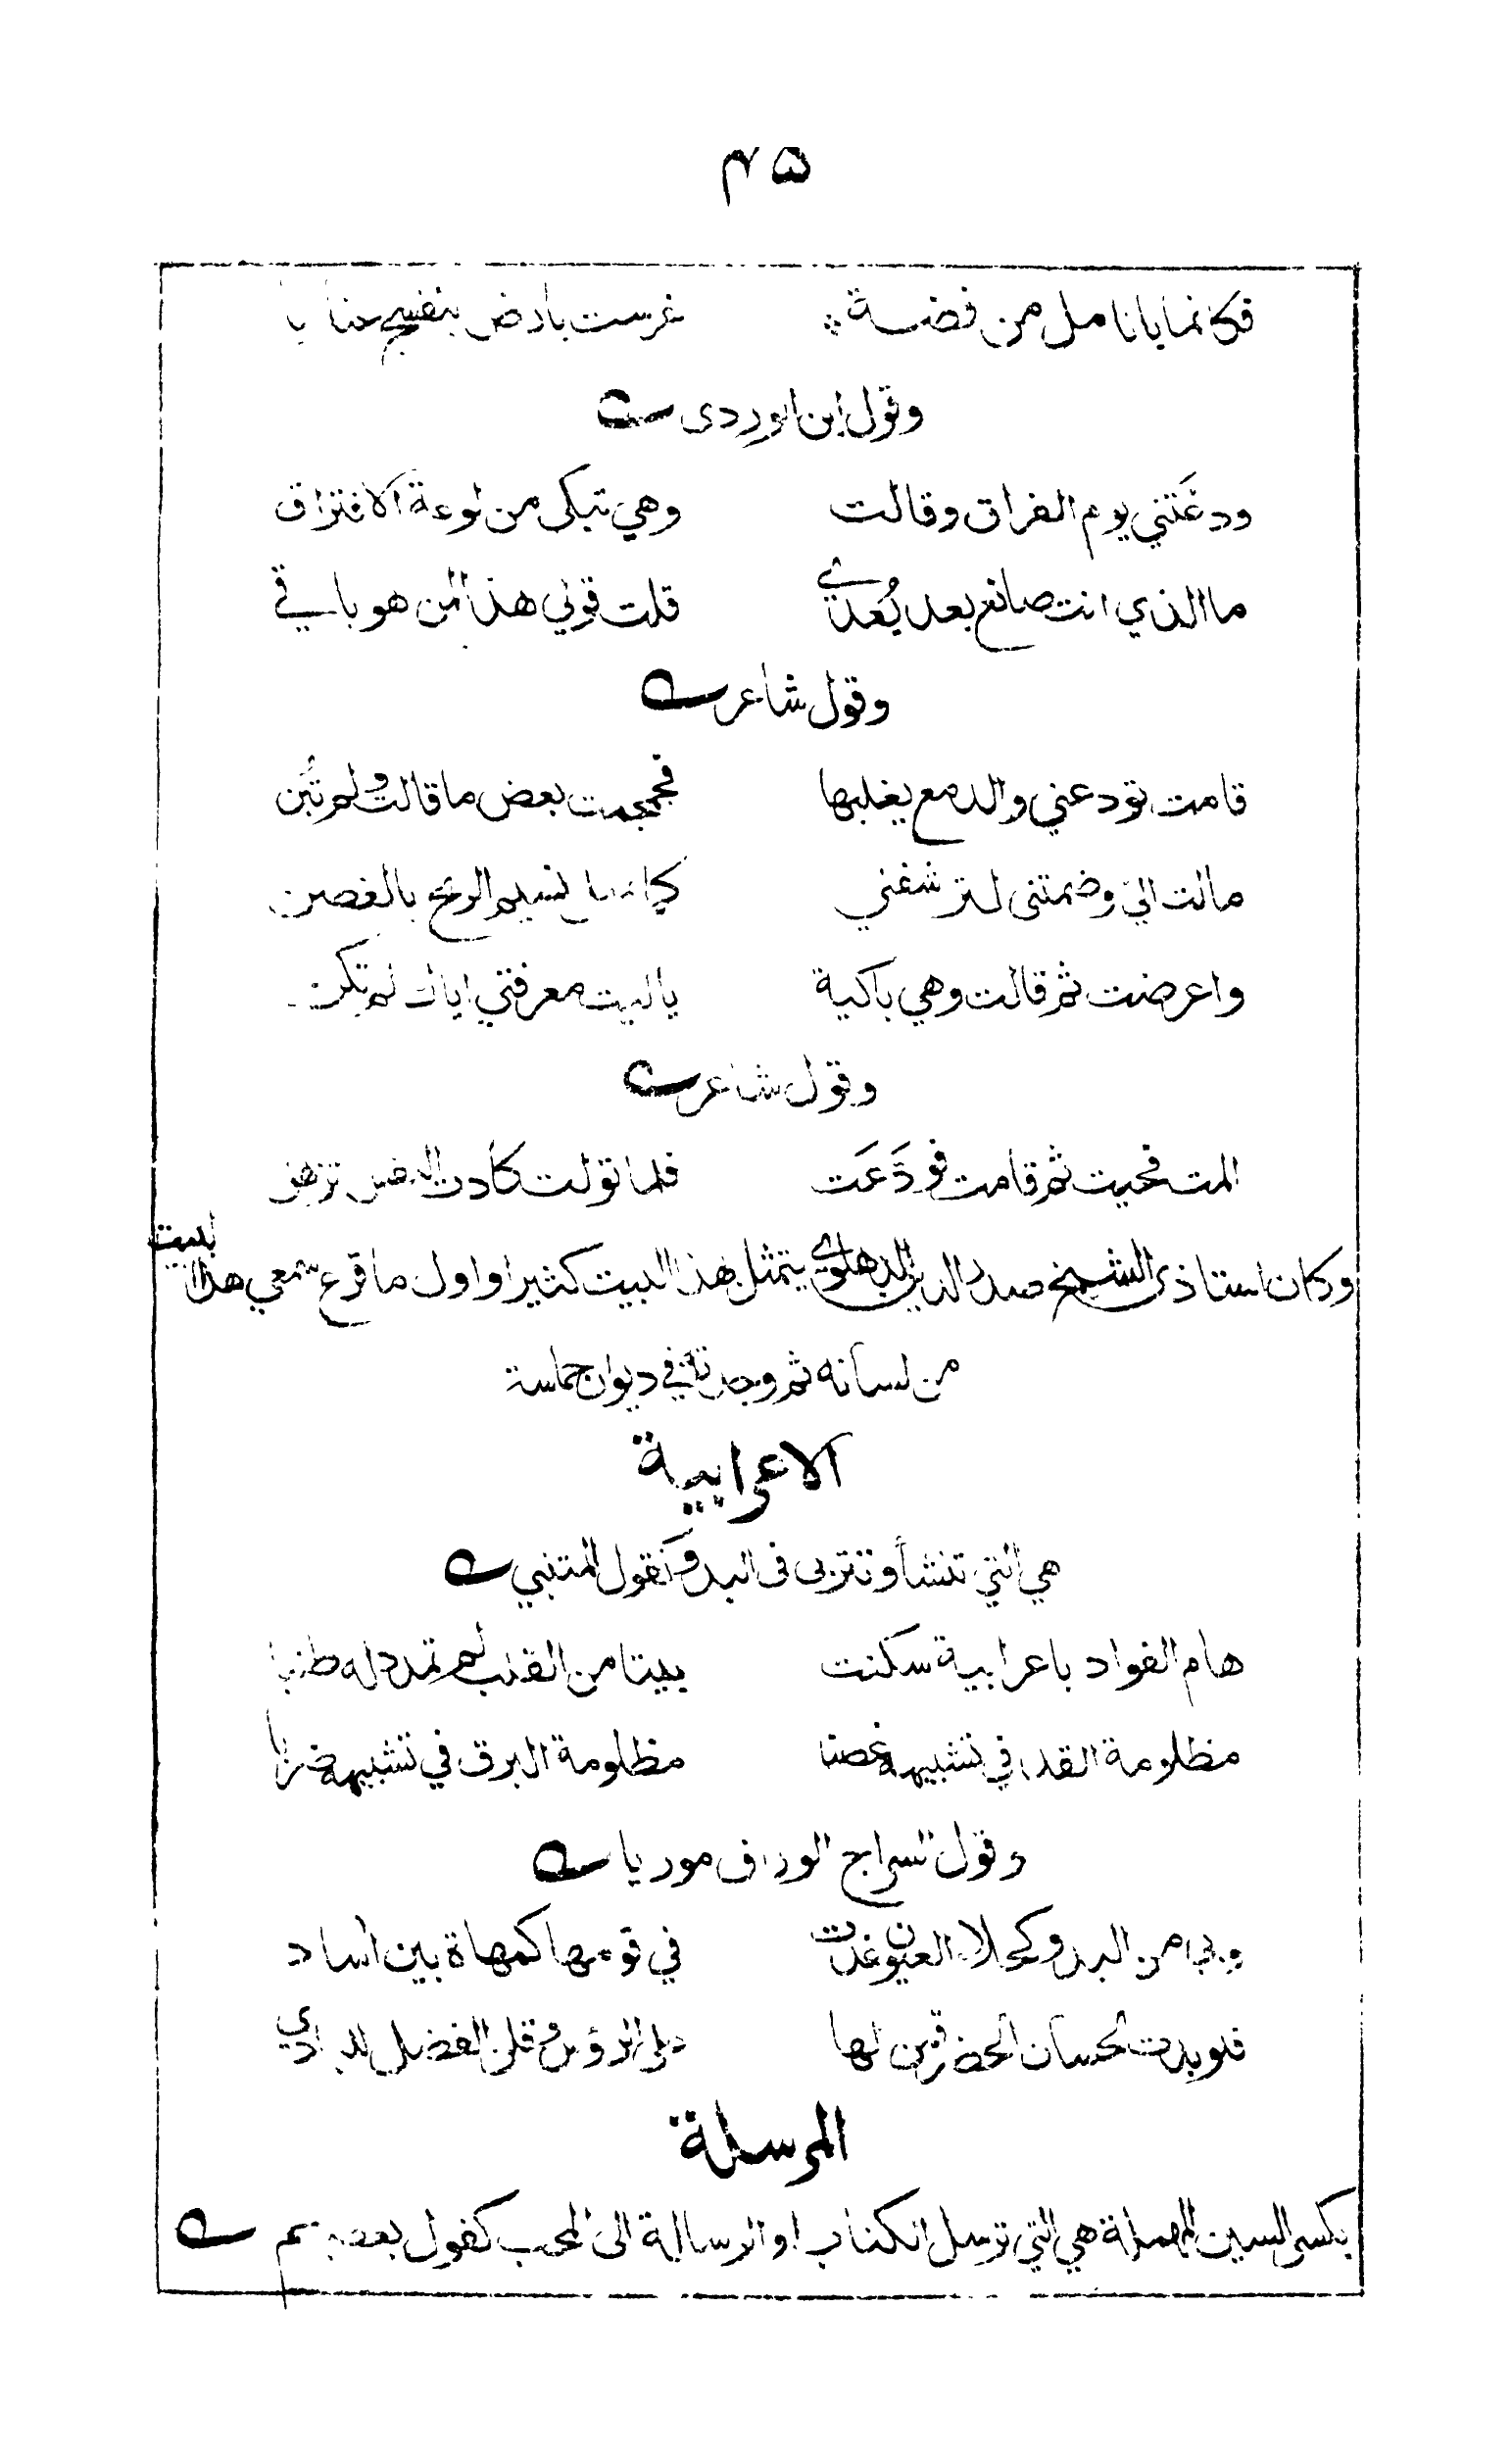 ۴۵
فكانما بانامل من فضة غرست بارض بنفسج عنابا
وقول ابن الوردى
ودعَتني يوم الفراق وقالت وهي تبكى من لوعة الافتراق
ما الذي انت صانع بعد بُعدي قلت قولي هذا لمن هو باقي
وقول شاعر
قامت تودعني والدمع يغلبها فجمجمت بعض ما قالت ولم تُبن
مالت اليّ وضمتنى لترشفني كما نسيم الريح بالغصن
واعرضت ثم قالت وهي باكية يا ليت معرفتي اياك لم تكن
وقول شاعر
المت فحيت ثم قامت فودَّعَت فلما تولت كادت النفس تزهق
وكان استاذى الشيخ صدر الدين الدهلوي يتمثل بهذا البيت كثيرا واول ما قرع سمعي هذا البيت
من لسانه ثم وجدته في ديوان حماسة
الاعرابية
هي التي تنشأ وتتربى فى البدو كقول المتنبي
هام الفواد باعرابية سكنت بيتا من القلب لم تمدد له طنبا
مظلومة القد في تشبيهه غصنا مظلومة البرق في تشبيهه ضربا
وقول السراج الوراق موريا
وبي من البدو كحلاء العيون غدت في قومها كمهاة بين اساد
فلو بدت لحسان الحضر قمن لها على الرؤس وقلن الفضل للبادي
المرسلة
بكسر السين المهملة هي التي ترسل الكتاب او الرسالة الى المحب كقول بعضهم